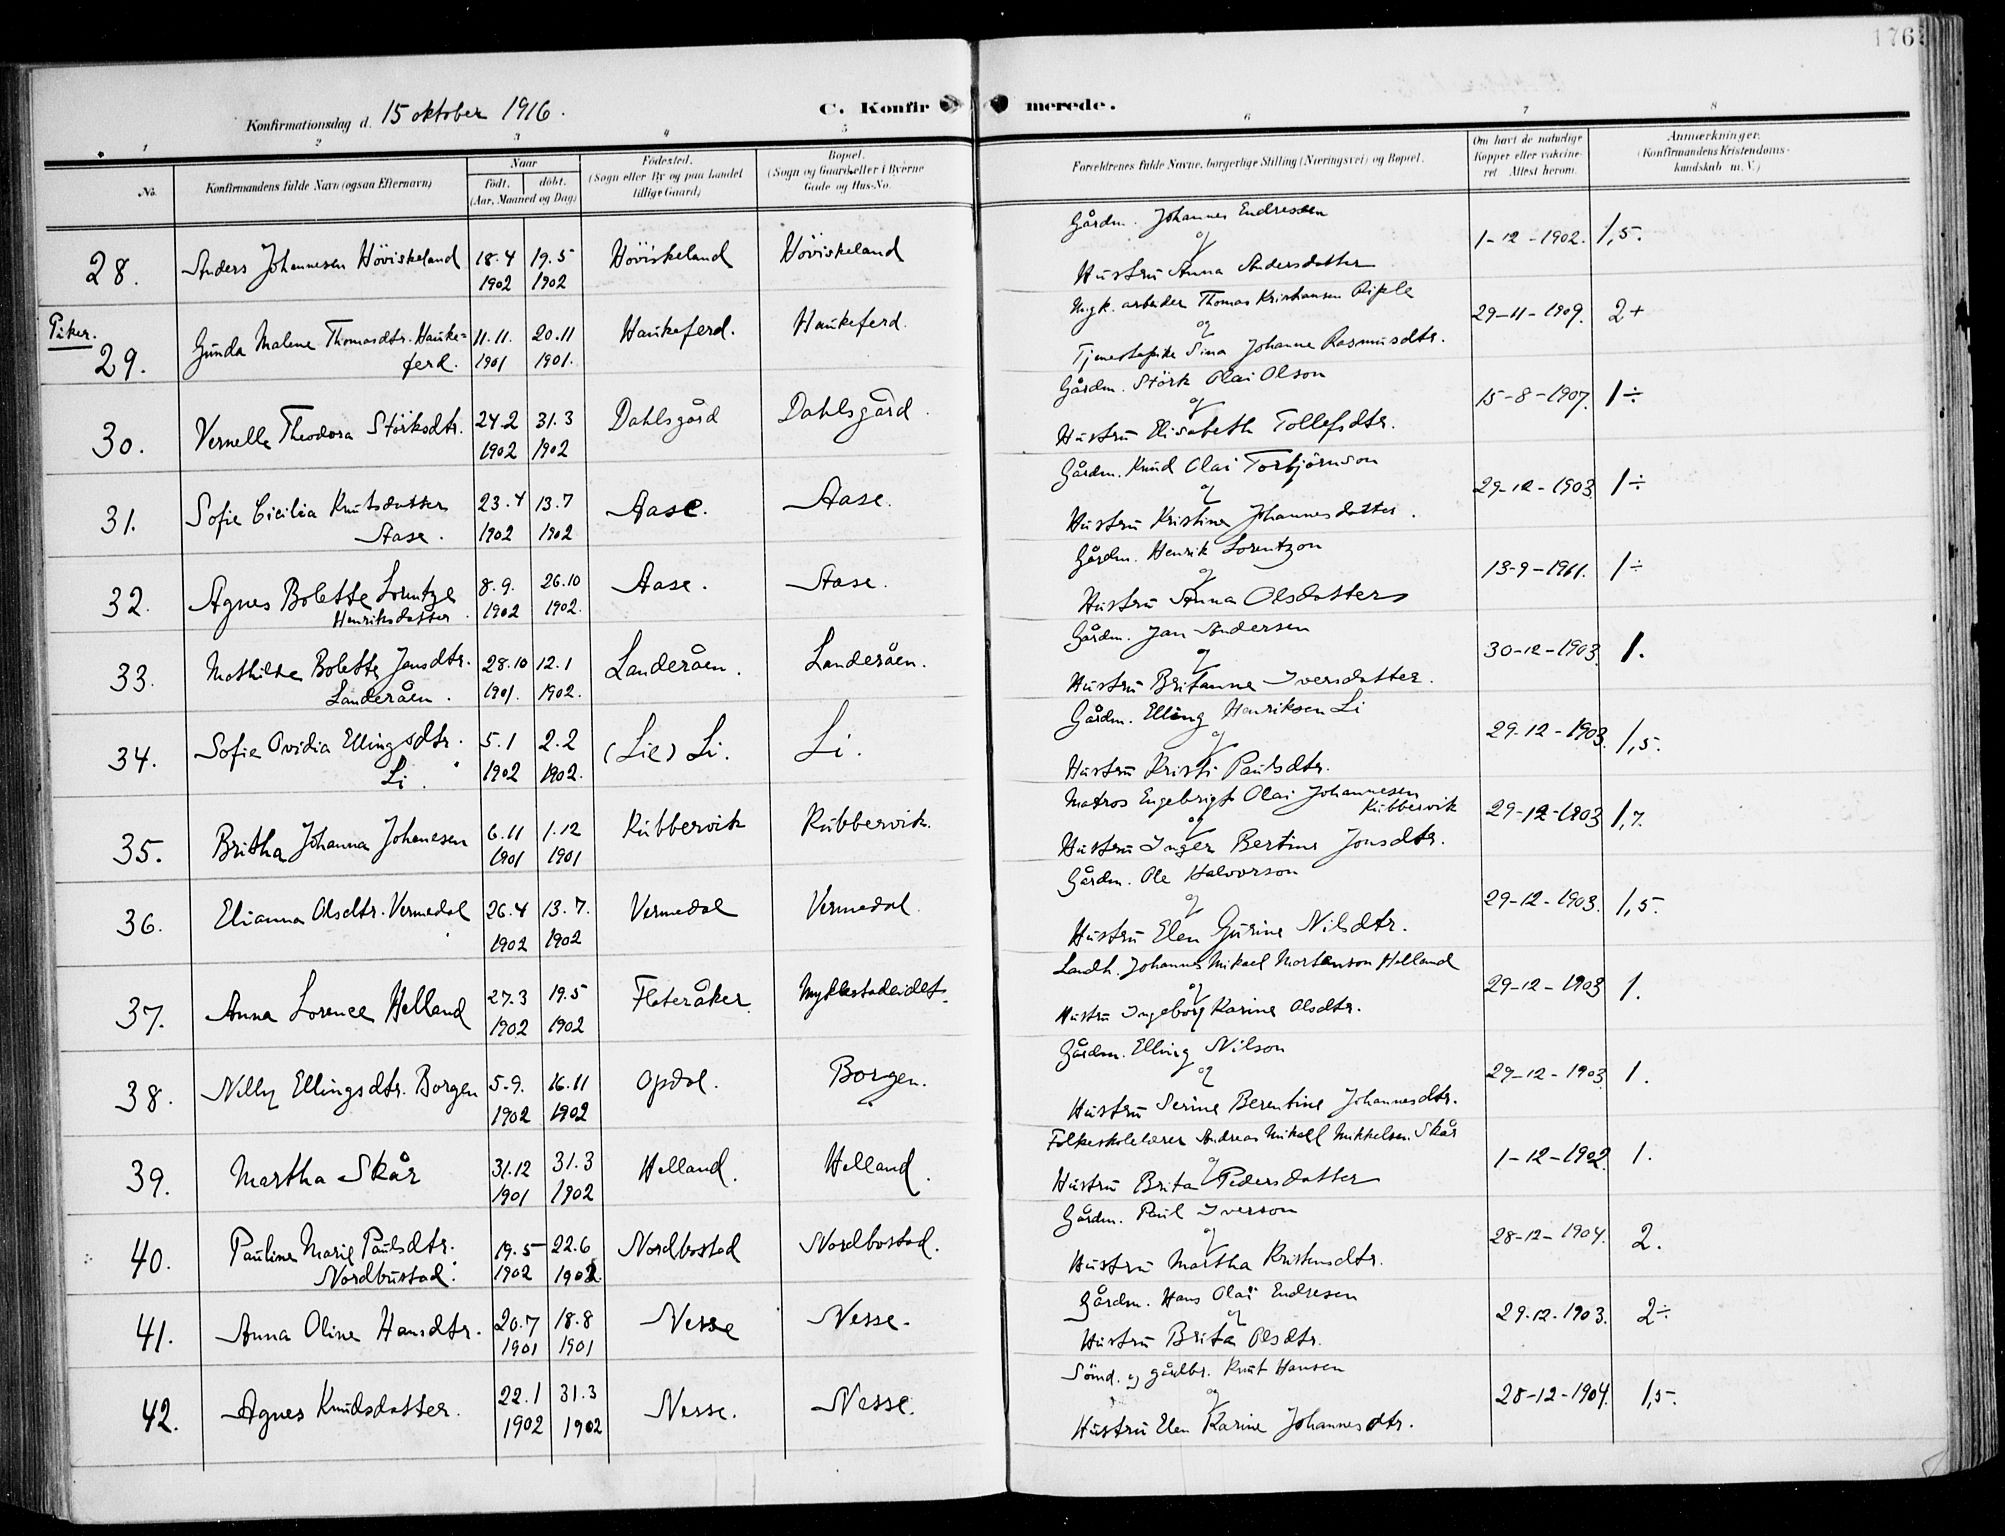 176
Konfirmationsdag d. 15 oktober 1916.
C. Konfirmerede.
1 2 3 4 5 6 7 8
No.
Konfirmandens fulde Navn (ogsaa Efternavn)
Naar
födt. döbt.
(Aar, Maaned og Dag)
Födested.
(Sogn eller By og paa Landet
tillige Gaard)
Bopæl.
(Sogn og Gaard, eller i Byerne
Gade og Hus-No.
Forældrenes fulde Navne, borgerlige Stilling (Næringsvei) og Bopæl.
Om havt de naturlige
Kopper eller vakcine-
ret. Attest herom.
Anmærkninger.
(Konfirmandens Kristendoms-
kundskab m. V.)
28. Anders Johannesen Höviskeland 18.4 1902 19.5 1902 Höviskeland Höviskeland
Gårdm. Johannes Endresen
og
Hustru Anna Andersdatter
1-12-1902. 1,5.
Piker.
29. Gunda Malene Thomasdtr. Hauke=
ferd. 11.11. 1901 20.11 1901. Haukeferd. Haukeferd.
Ugk. arbeider Thomas Kristiansen Riple
og
Tjenestepike Sina Johanne Rasmusdtr.
29-11-1909. 2+
30. Vernelle Theodora Störksdtr. 24.2 1902 31.3 1902 Dahlsgård Dahlsgård.
Gårdm. Störk Olai Olson
og
Hustru Elisabeth Tollefsdtr.
15-8-1907. 1÷
31. Sofie Cicilia Knutsdatter
Aase. 23.4 1902 13.7 1902 Aase. Aase.
Gårdm. Knud Olai Torbjörnson
og
Hustru Kristine Johannesdatter.
29-12-1903. 1÷
32. Agnes Bolette Lorntze
Henriksdatter. 8.9. 1902 26.10 1902. Aase. Aase.
Gårdm. Henrik Lorentzon
og
Hustru Anna Olsdatter
13-9-1911. 1÷
33. Mathilde Bolette Jansdtr.
Landeråen. 28.10 1901. 12.1 1902. Landeråen. Landeråen.
Gårdm. Jan Andersen
og
Hustru Britanna Iversdatter.
30-12-1903. 1.
34. Sofie Ovidia Ellingsdtr.
Li. 5.1 1902 2.2 1902. (Lie) Li. Li.
Gårdm. Elling Henriksen Li
og
Hustru Kristi Paulsdtr.
29.12-1903. 1,5.
35. Britha Johanna Johanesen 6.11 1901 1.12 1901 Kubbervik Kubbervik.
Matros Engebrigt Olai Johannesen
Kubbervik
og
Hustru Inger Bertine Jonsdtr.
29-12-1903 1,7.
36. Elianna Olsdtr. Vermedal 26.4 1902 13.7. 1902 Vermedal Vermedal.
Gårdm. Ole Halvorson
og
Hustru Elen Gurine Nilsdtr.
29-12-1903. 1,5.
37. Anna Lorence Helland 27.3 1902 19.5 1902 Flateråker. Myklestadeidet.
Landh. Johannes Mikael Martenson Helland
og
Hustru Ingeborg Karine Olsdtr.
29-12-1903 1.
38. Nilly Ellingsdtr. Borgen 5.9. 1902 16.11 1902 Opdal. Borgen.
Gårdm. Elling Nilson
og
Hustru Serine Berentine Johannesdtr.
29-12-1903. 1.
39. Martha Skår 31.12 1901 31.3 1902 Helland. Helland.
Folkeskolelærer Andreas Mikael Mikkelsen Skår
og
Hustru Brita Pedersdatter
1-12-1902. 1.
40. Pauline Marie Paulsdtr.
Nordbustad. 19.5 1902 22.6 1902 Nordbostad Nordbostad.
Gårdm. Paul Iverson
og
Hustru Martha Kristensdtr.
28-12-1904. 2.
41. Anna Oline Hansdtr. 20.7 1901 18.8 1901 Nesse Nesse.
Gårdm. Hans Olai Endresen
og
Hustru Brita Olsdtr.
29.12.1903. 2÷
42. Agnes Knudsdatter. 22.1 1902 31.3 1902 Nesse. Nesse.
Sömd. og gårdbr. Knut Hansen
og
Hustru Elen Karine Johannesdtr.
28-12-1904. 1,5.